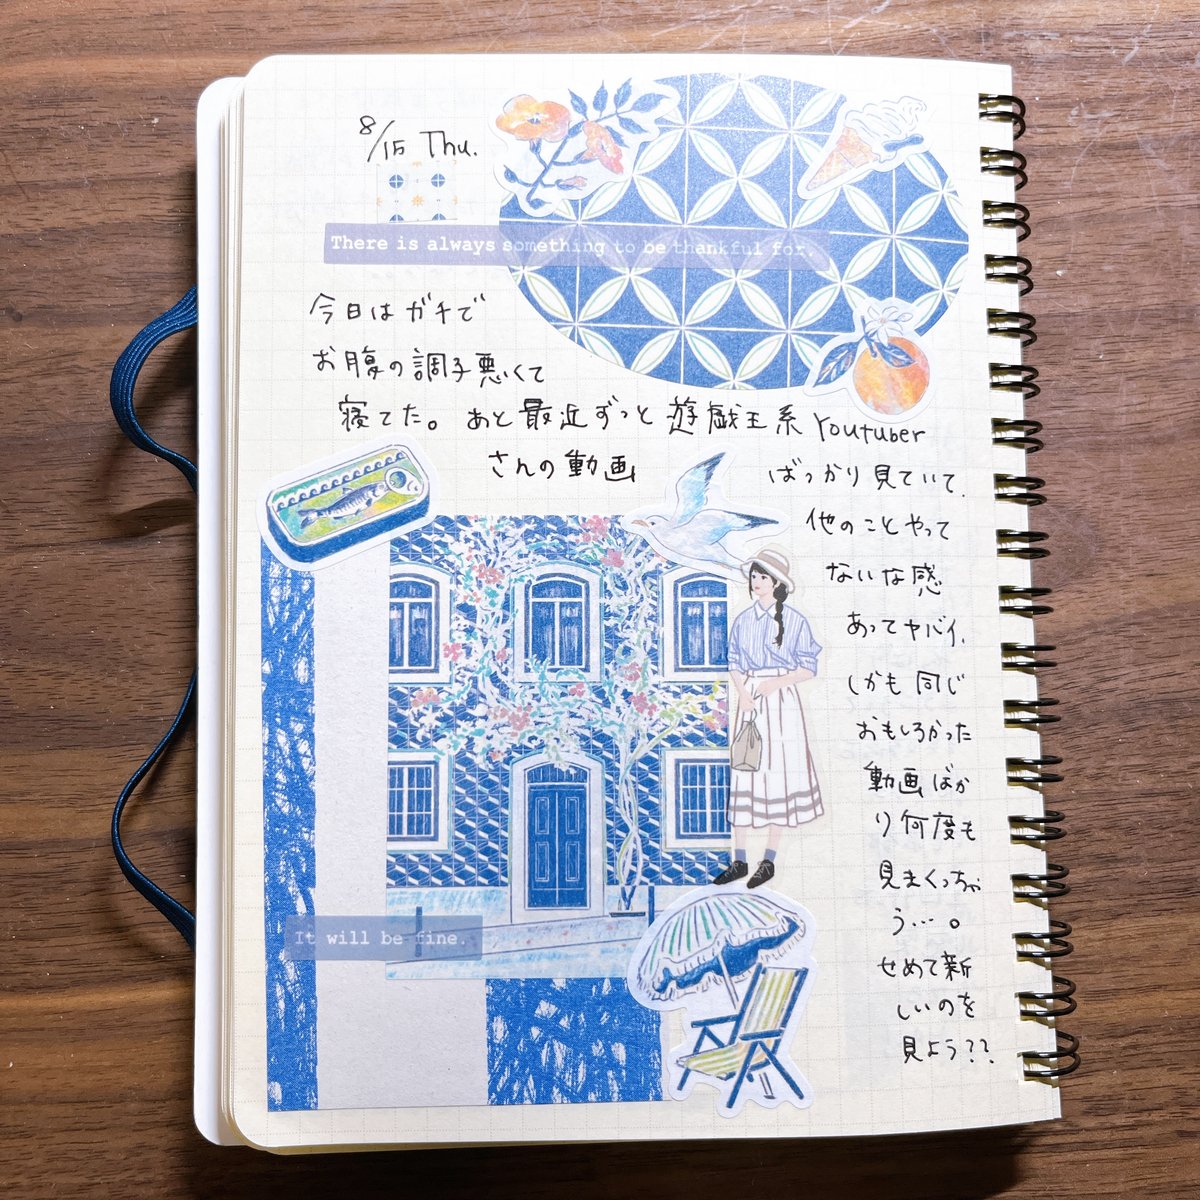 8/15 Thu.
There is always something to be thankful for.
今日はガチで
お腹の調子悪くて
寝てた。あと最近ずっと遊戯王系Youtuber
さんの動画
ばっかり見ていて、
他のことやって
ないな感
あってヤバイ、
しかも同じ
おもしろかった
動画ばか
り何度も
見まくっちゃ
う…。
せめて新
しいのを
見よう??
It will be fine.